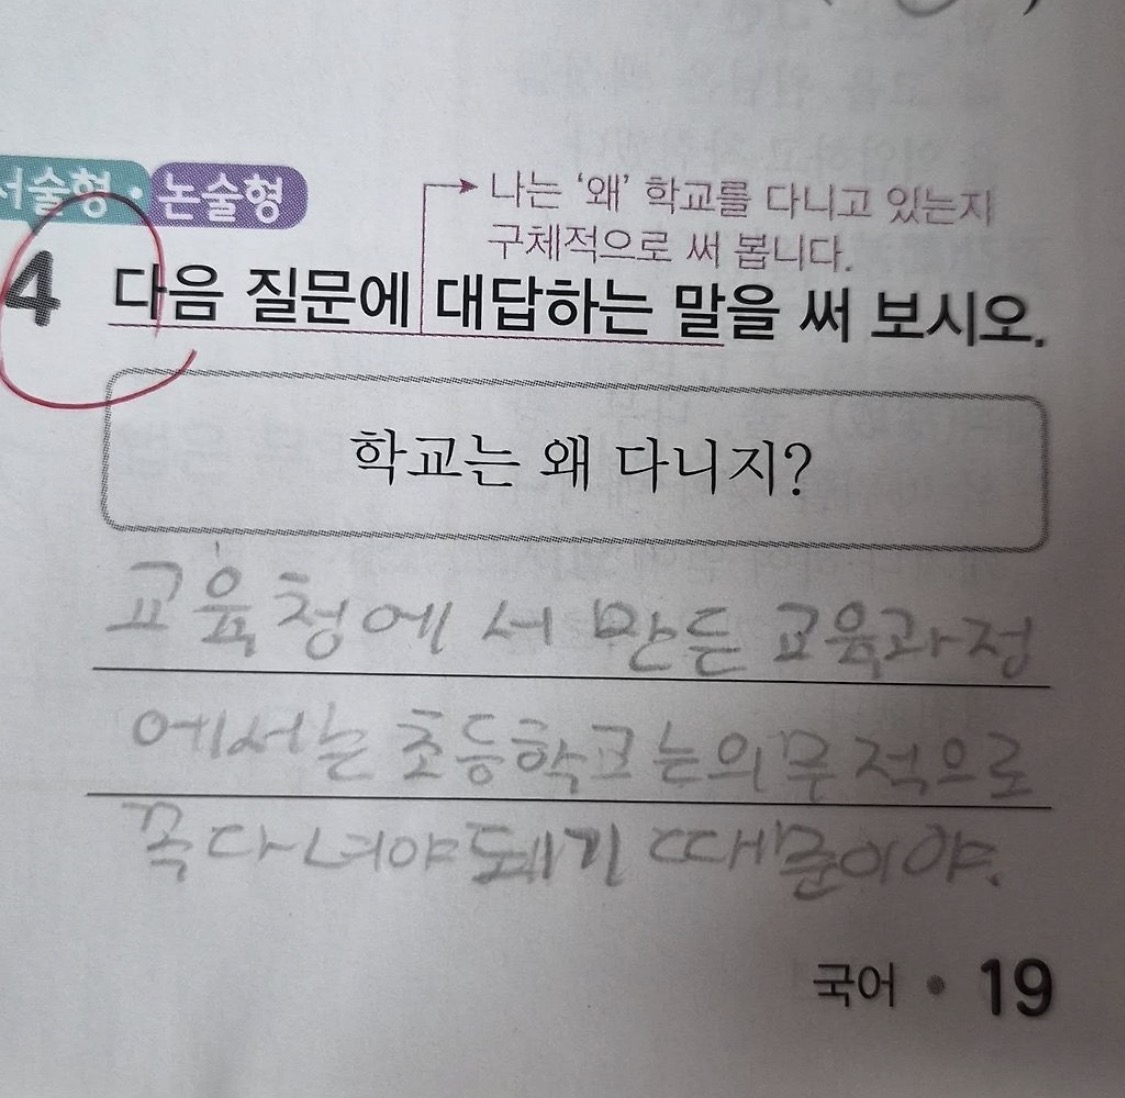 서술형·논술형
나는 '왜' 학교를 다니고 있는지
구체적으로 써 봅니다.
4 다음 질문에 대답하는 말을 써 보시오.
학교는 왜 다니지?
교육청에서 만든 교육과정
에서는 초등학교는 의무적으로
꼭 다녀야 돼기 때문이야.
국어 • 19